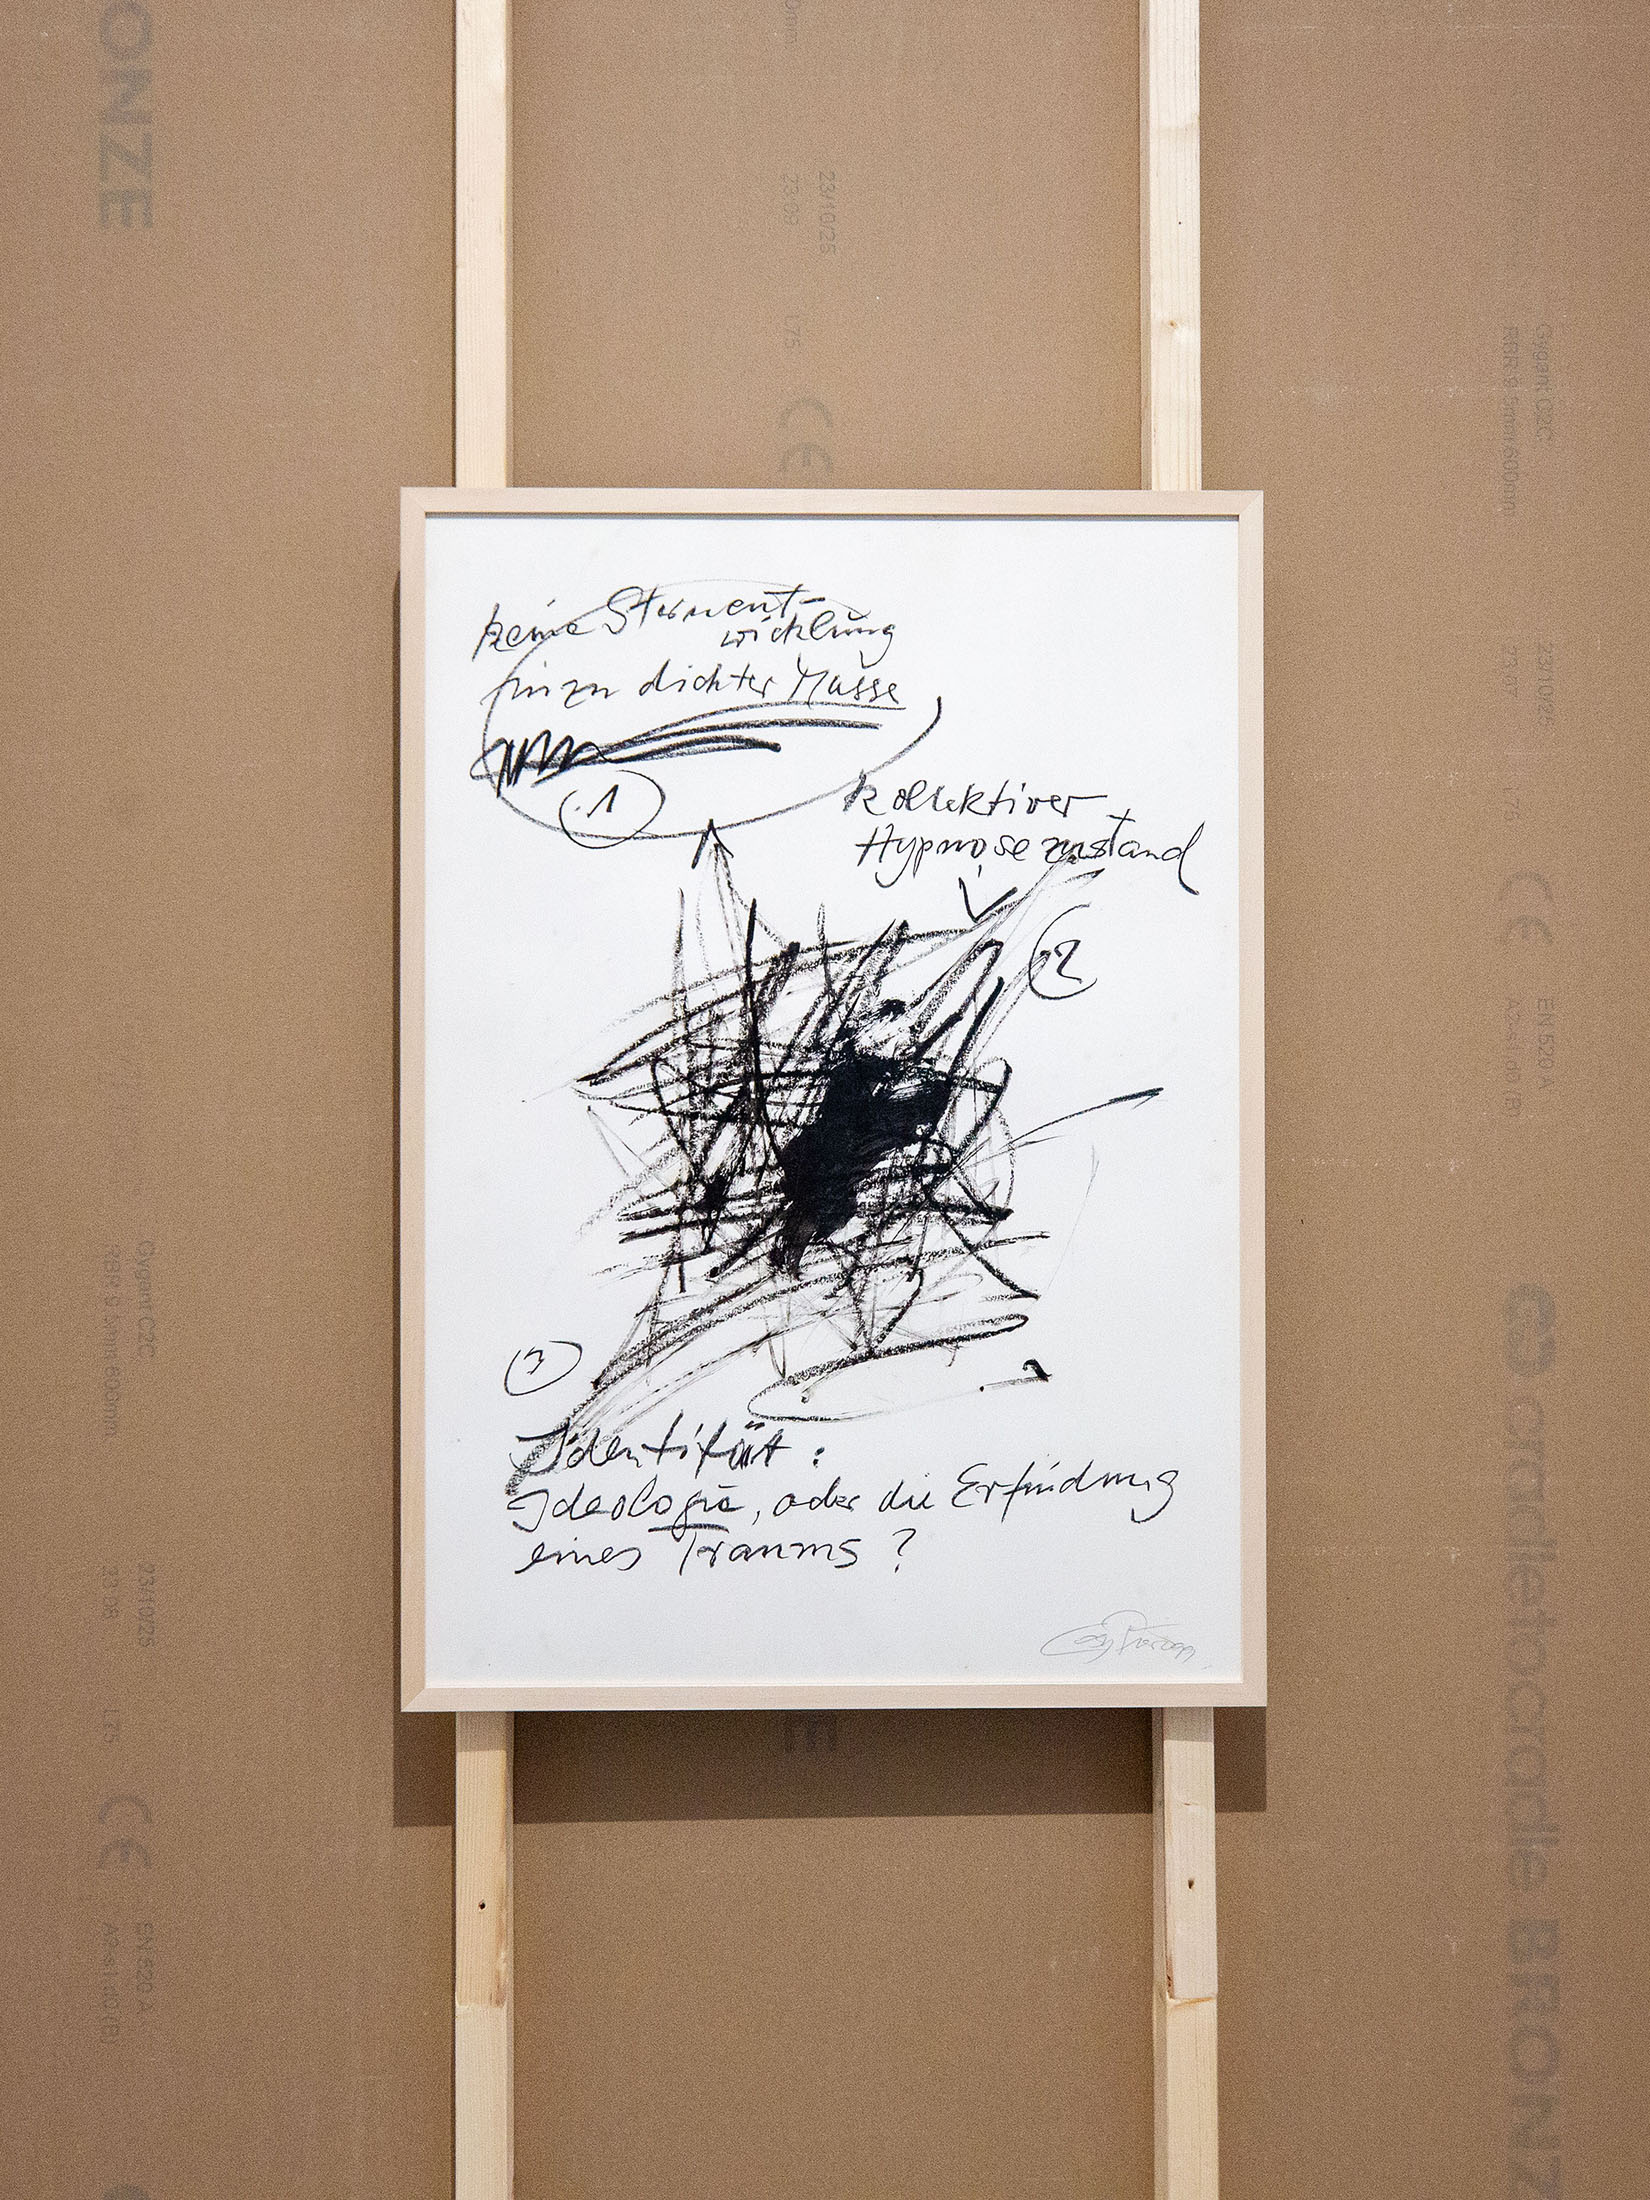 ONZE
23/10/25
23:09
L75
CE
Gygant C2C
RBR 9.5mm 600mm
23/10/25
23:07
L75
CE
EN 520 A
A2-s1,d0 (B)
cradletocradle BRONZ
keine Sternent-
wicklung
in zu dichter Masse
1
kollektiver
Hypnosezustand
2
3
Identität:
Ideologie, oder die Erfindung
eines Traums?
Gygant C2C
RBR 9.5mm 600mm
23/10/25
23:08
L75
CE
EN 520 A
A2-s1,d0 (B)
E